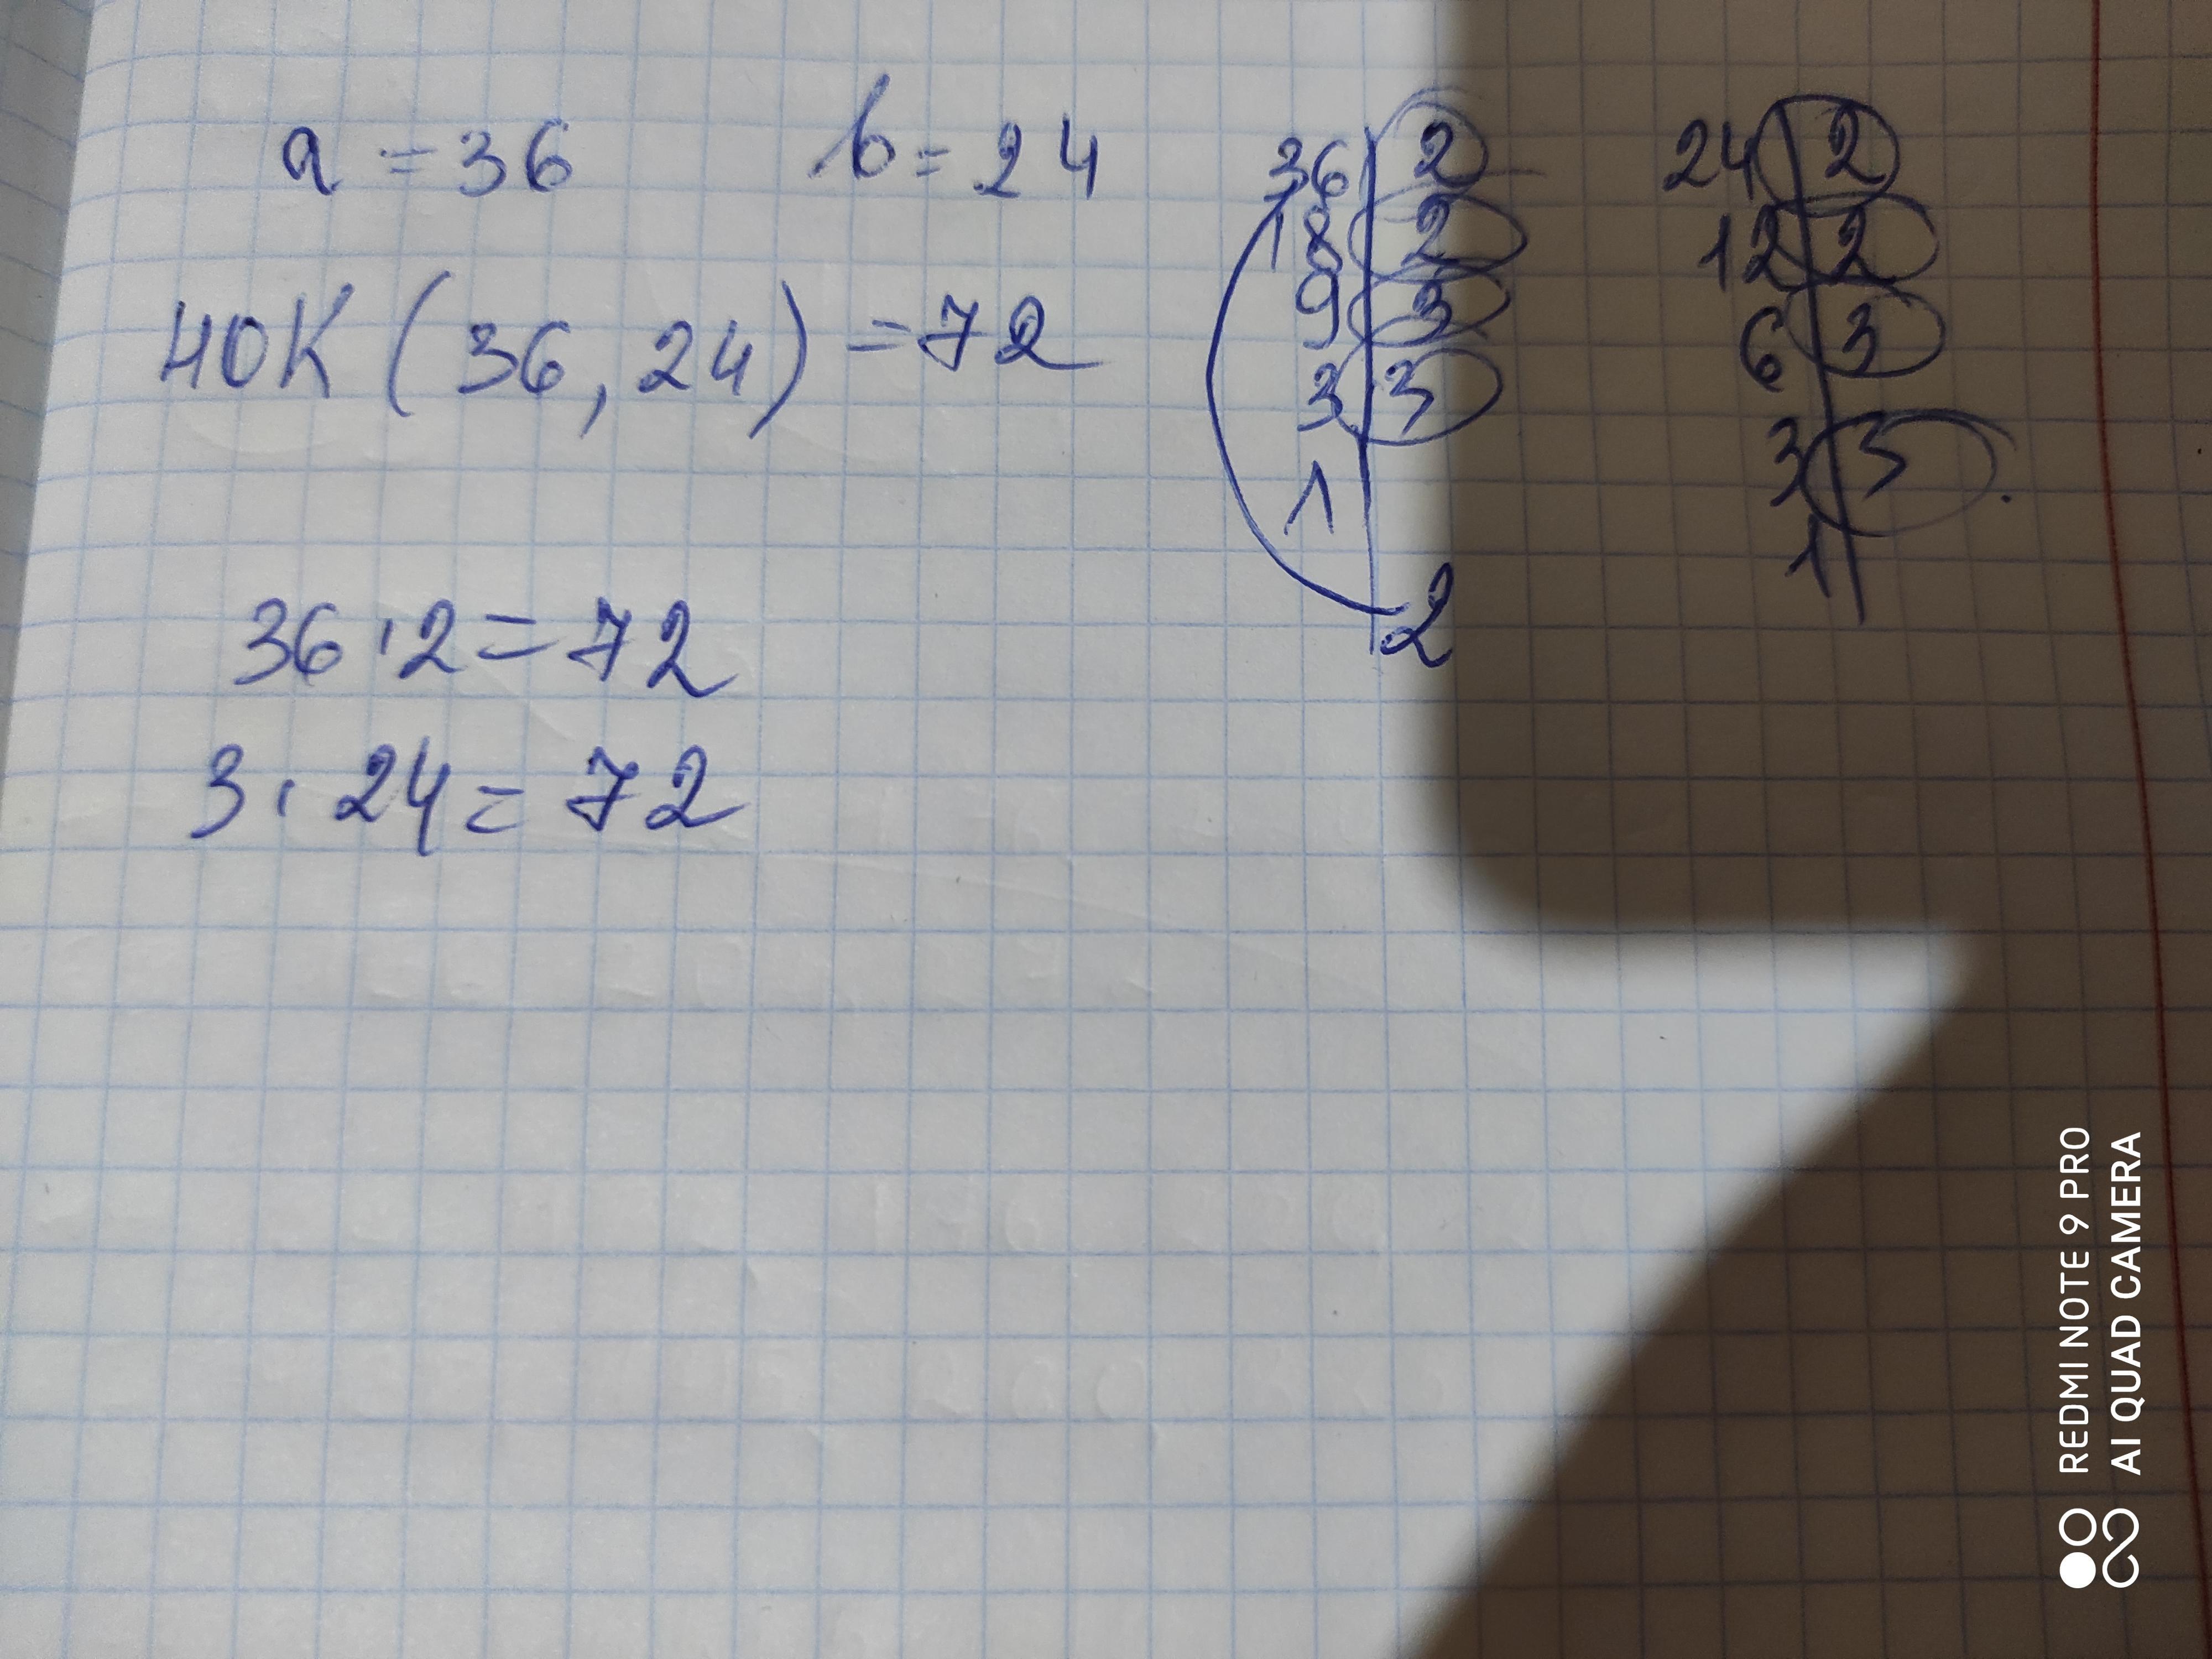 a = 36 b = 24
НОК (36, 24) = 72
36 · 2 = 72
3 · 24 = 72
36 | 2
18 | 2
9 | 3
3 | 3
1
2
24 | 2
12 | 2
6 | 3
3 | 3
1
REDMI NOTE 9 PRO
AI QUAD CAMERA